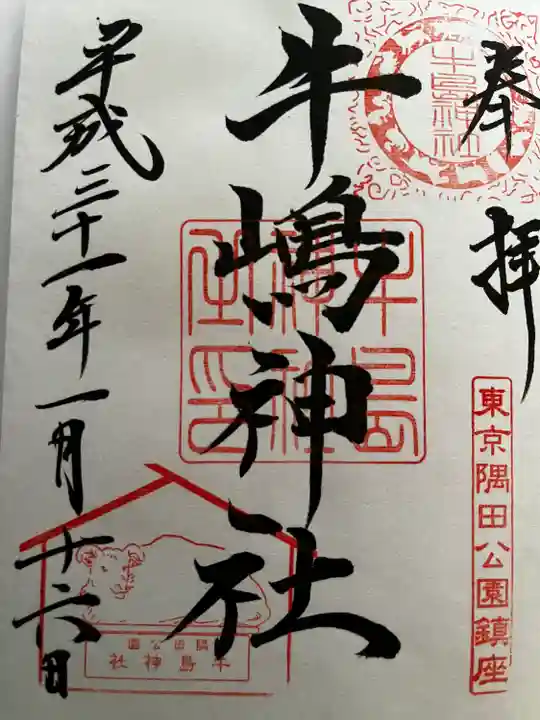 奉拝
東京隅田公園鎮座
牛島神社
牛嶋神社
平成三十一年一月十六日
隅田公園
牛島神社